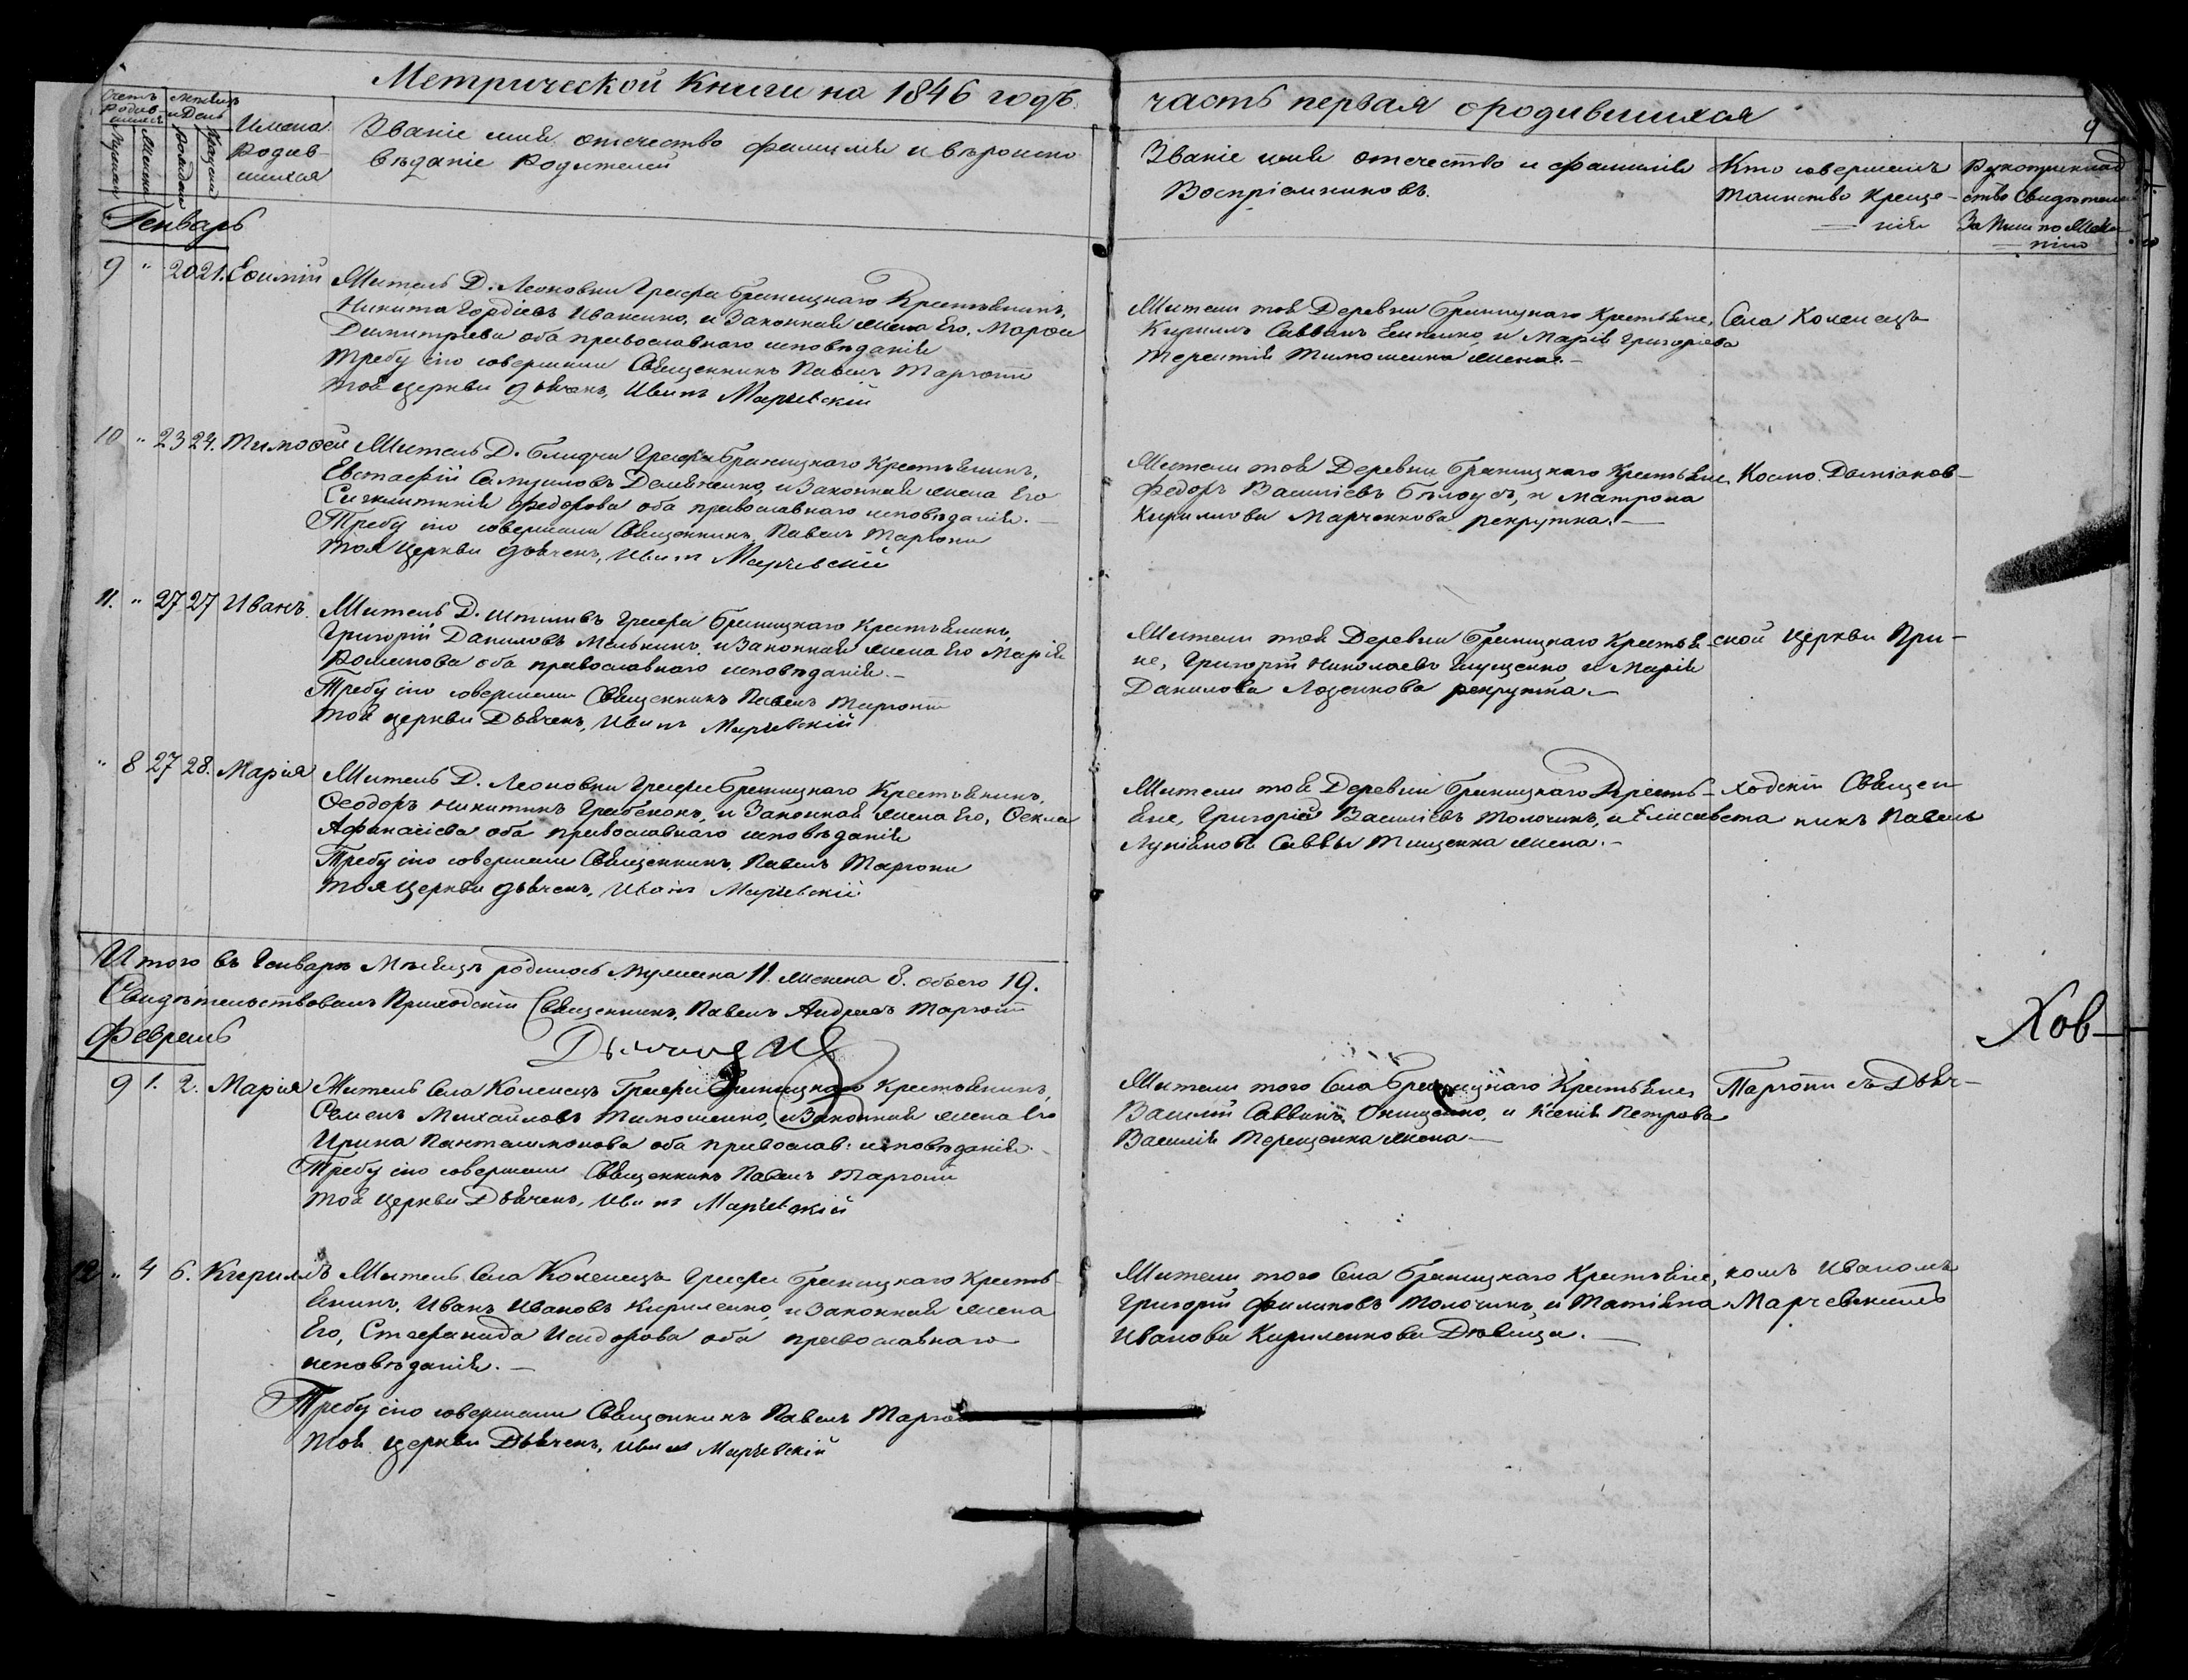 Метрической Книги на 1846 годъ
часть первая о родившихся
9
Счетъ родившихся
Мѣсяцъ и День
Имена Родившихся
Званіе имя отечество фамилія и вѣроиспо
вѣданіе Родителей
Званіе имя отечество и фамилія
Воспріемниковъ.
Кто совершалъ
таинство Креще-
нія
Генварь
9 " 20 21. Евѳимій Житель Д. Леоновки Графа Браницкаго Крестьянинъ,
Никита Гордіевъ Иваненко, и Законная жена Его, Марѳа
Димитріева оба православнаго исповѣданія
Требу сію совершали Священникъ Павелъ
той церкви дьячекъ, Иванъ Марчевскій
Жители той Деревни Браницкаго Крестьяне,
Кириллъ Саввинъ и Марія Григоріева
Терентія Тимошенка жена.-
Села Коленецъ
10 " 23 24. Тимоѳей Житель Д. Блидчи Графа Браницкаго Крестьянинъ,
Евстафій Самуиловъ и Законная жена Его
Синклитикія Федорова оба православнаго исповѣданія.-
Требу сію совершали Священникъ, Павелъ
тоя церкви дьячекъ, Иванъ Марчевскій
Жители той Деревни Браницкаго Крестьяне,
Федоръ Василіевъ Бѣлоусъ, и Матрона
Кириллова Марченкова рекрутка.-
Космо-Даміанов-
11. " 27 27 Иванъ Житель Д. Графа Браницкаго Крестьянинъ,
Григорій Даниловъ и Законная жена Его Марія
Романова оба православнаго исповѣданія.-
Требу сію совершали Священникъ Павелъ
той церкви Дьячекъ, Иванъ Марчевскій
Жители той Деревни Браницкаго Крестья-
не, Григорій Николаевъ и Марія
Данилова рекрутка.-
ской церкви При-
" 8 27 28. Марія Житель Д. Леоновки Графа Браницкаго Крестьянинъ,
Ѳеодоръ Никитинъ Гребенюкъ, и Законная жена Его, Ѳекла
Афанасіева оба православнаго исповѣданія
Требу сію совершали Священникъ, Павелъ
тоя церкви дьячекъ, Иванъ Марчевскій
Жители той Деревни Браницкаго Кресть-
яне, Григорій Василіевъ Толочинъ, и Елисавета
Саввы Тищенка жена.-
ходскій Священ
никъ Павелъ
Итого въ Генварѣ Мѣсяцѣ родилось Мужеска 11. женска 8. обоего 19.
Свидѣтельствовалъ Приходскій Священникъ, Павелъ Андреевъ
Февраль
Хов-
9 1. 2. Марія Житель Села Коленецъ Графа Браницкаго Крестьянинъ,
Семенъ Михайловъ Тимошенко, и Законная жена Его
Ирина Пантелимонова оба православ: исповѣданія.-
Требу сію совершали Священникъ Павелъ
той церкви Дьячекъ, Иванъ Марчевскій
Жители того Села Браницкаго Крестьяне
Василій Саввинъ Онищенко, и Ксенія Петрова
Василія Терещенка жена-
съ Дьяч-
12 " 4 6. Кириллъ Житель Села Коленецъ Графа Браницкаго Кресть-
янинъ, Иванъ Ивановъ Кириленко, и Законная жена
Его, Стефанида Исидорова оба православнаго
исповѣданія.-
Требу сію совершали Священникъ Павелъ
той церкви Дьячекъ, Иванъ Марчевскій
Жители того Села Браницкаго Крестьяне,
Григорій Филиповъ Толочинъ, и Татіяна
Иванова Кириленкова Дѣвица.-
комъ Иваномъ
Марчевскимъ